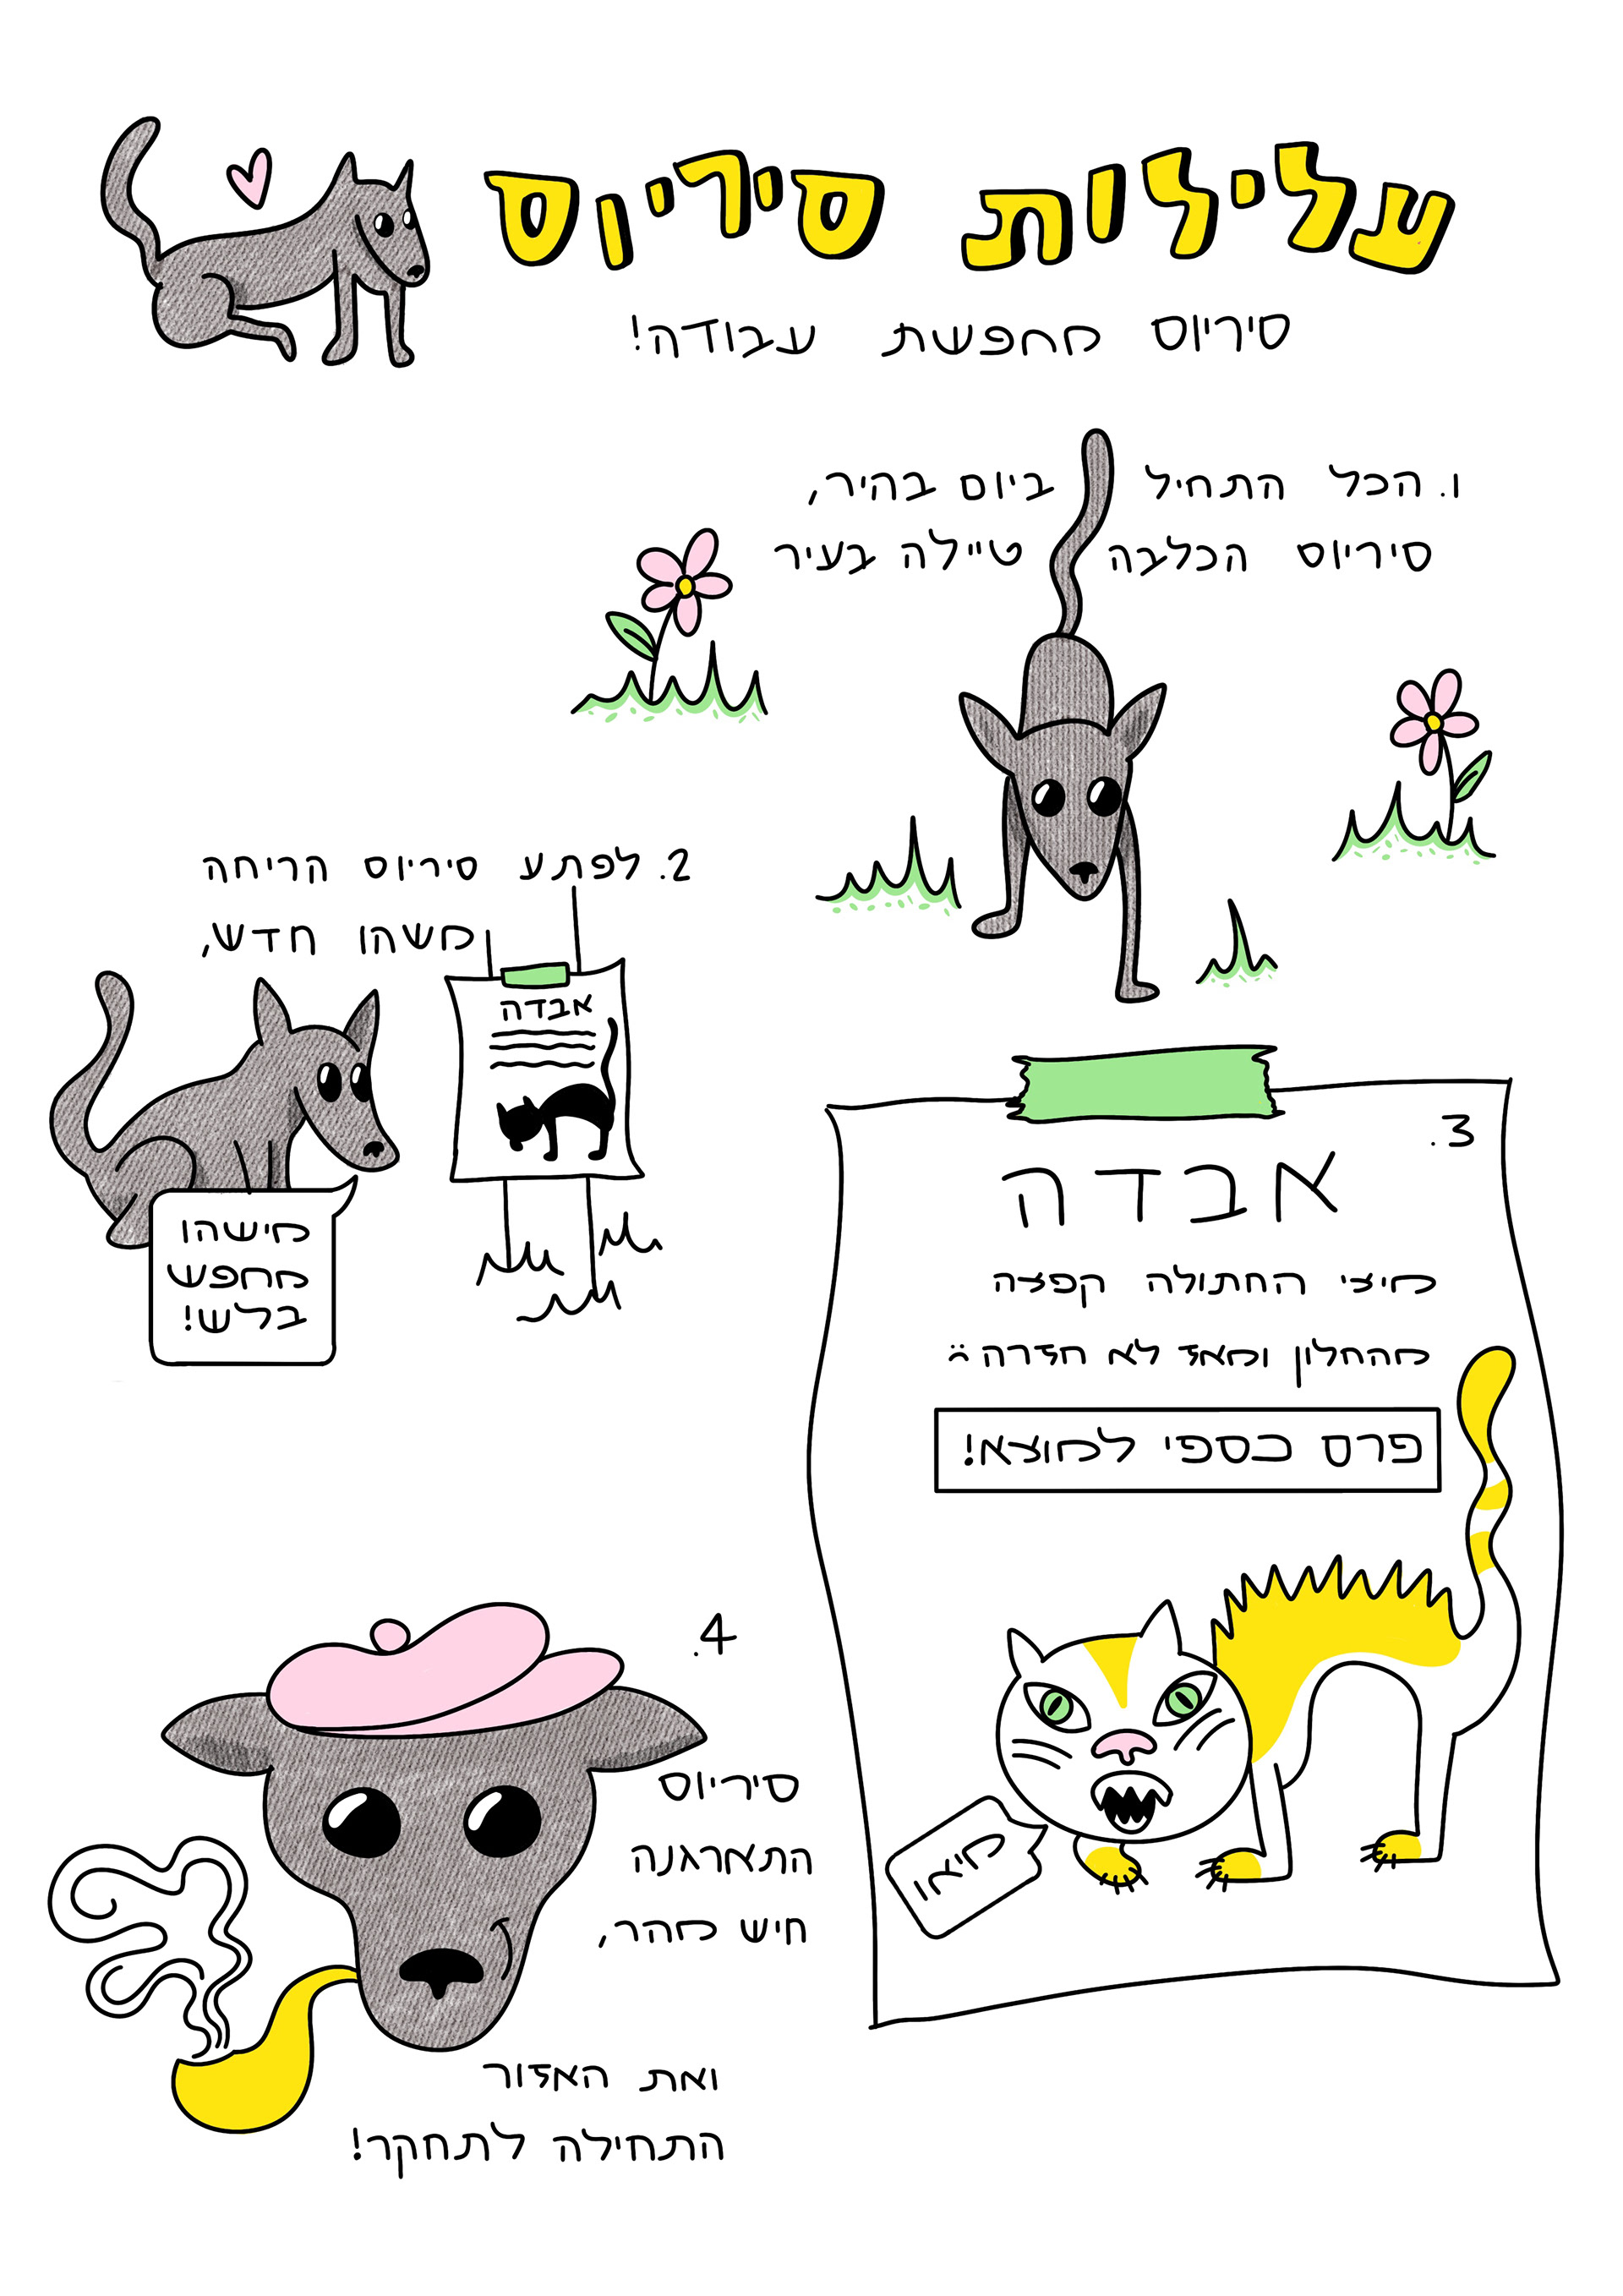 עלילות סיריוס
סיריוס מחפשת עבודה!
1. הכל התחיל ביום בהיר,
סיריוס הכלבה טיילה בעיר
2. לפתע סיריוס הריחה
משהו חדש,
אבדה
מישהו
מחפש
בלש!
3.
אבדה
מיצי החתולה קפצה
מהחלון ומאז לא חזרה :(
פרס כספי למוצא!
מיאו
4.
סיריוס
התארגנה
חיש מהר,
ואת האזור
התחילה לתחקר!